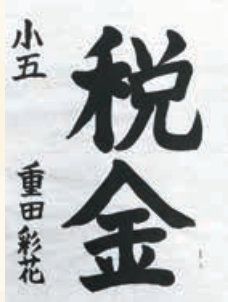 税金
小五 重田彩花